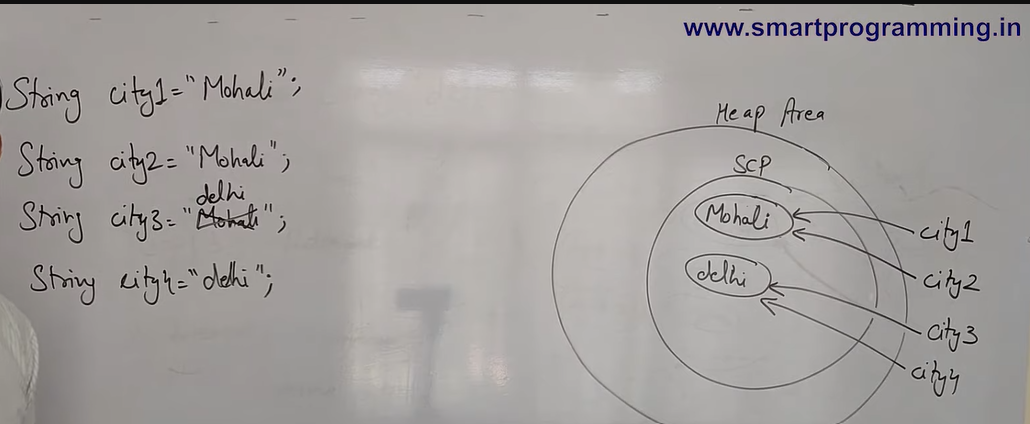 www.smartprogramming.in
String city1 = "Mohali";
String city2 = "Mohali";
delhi
String city3 = "Mohali";
String city4 = "delhi";
Heap Area
SCP
Mohali
delhi
city1
city2
city3
city4